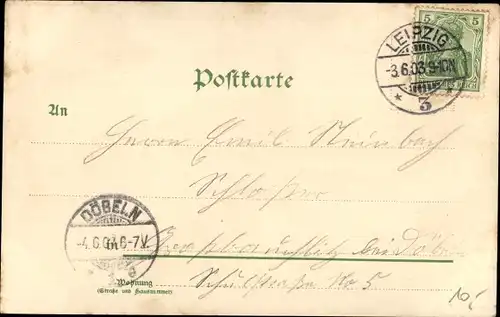 5 5
LEIPZIG
-3.6.03.9-10N
* 3 *
Postkarte
An
Herrn Emil Steinbach
Schlosser
DÖBELN
-4.6.03.6-7V.
In
bei Döbeln
Wohnung
(Straße und Hausnummer)
Schulstraße No 5
10,-